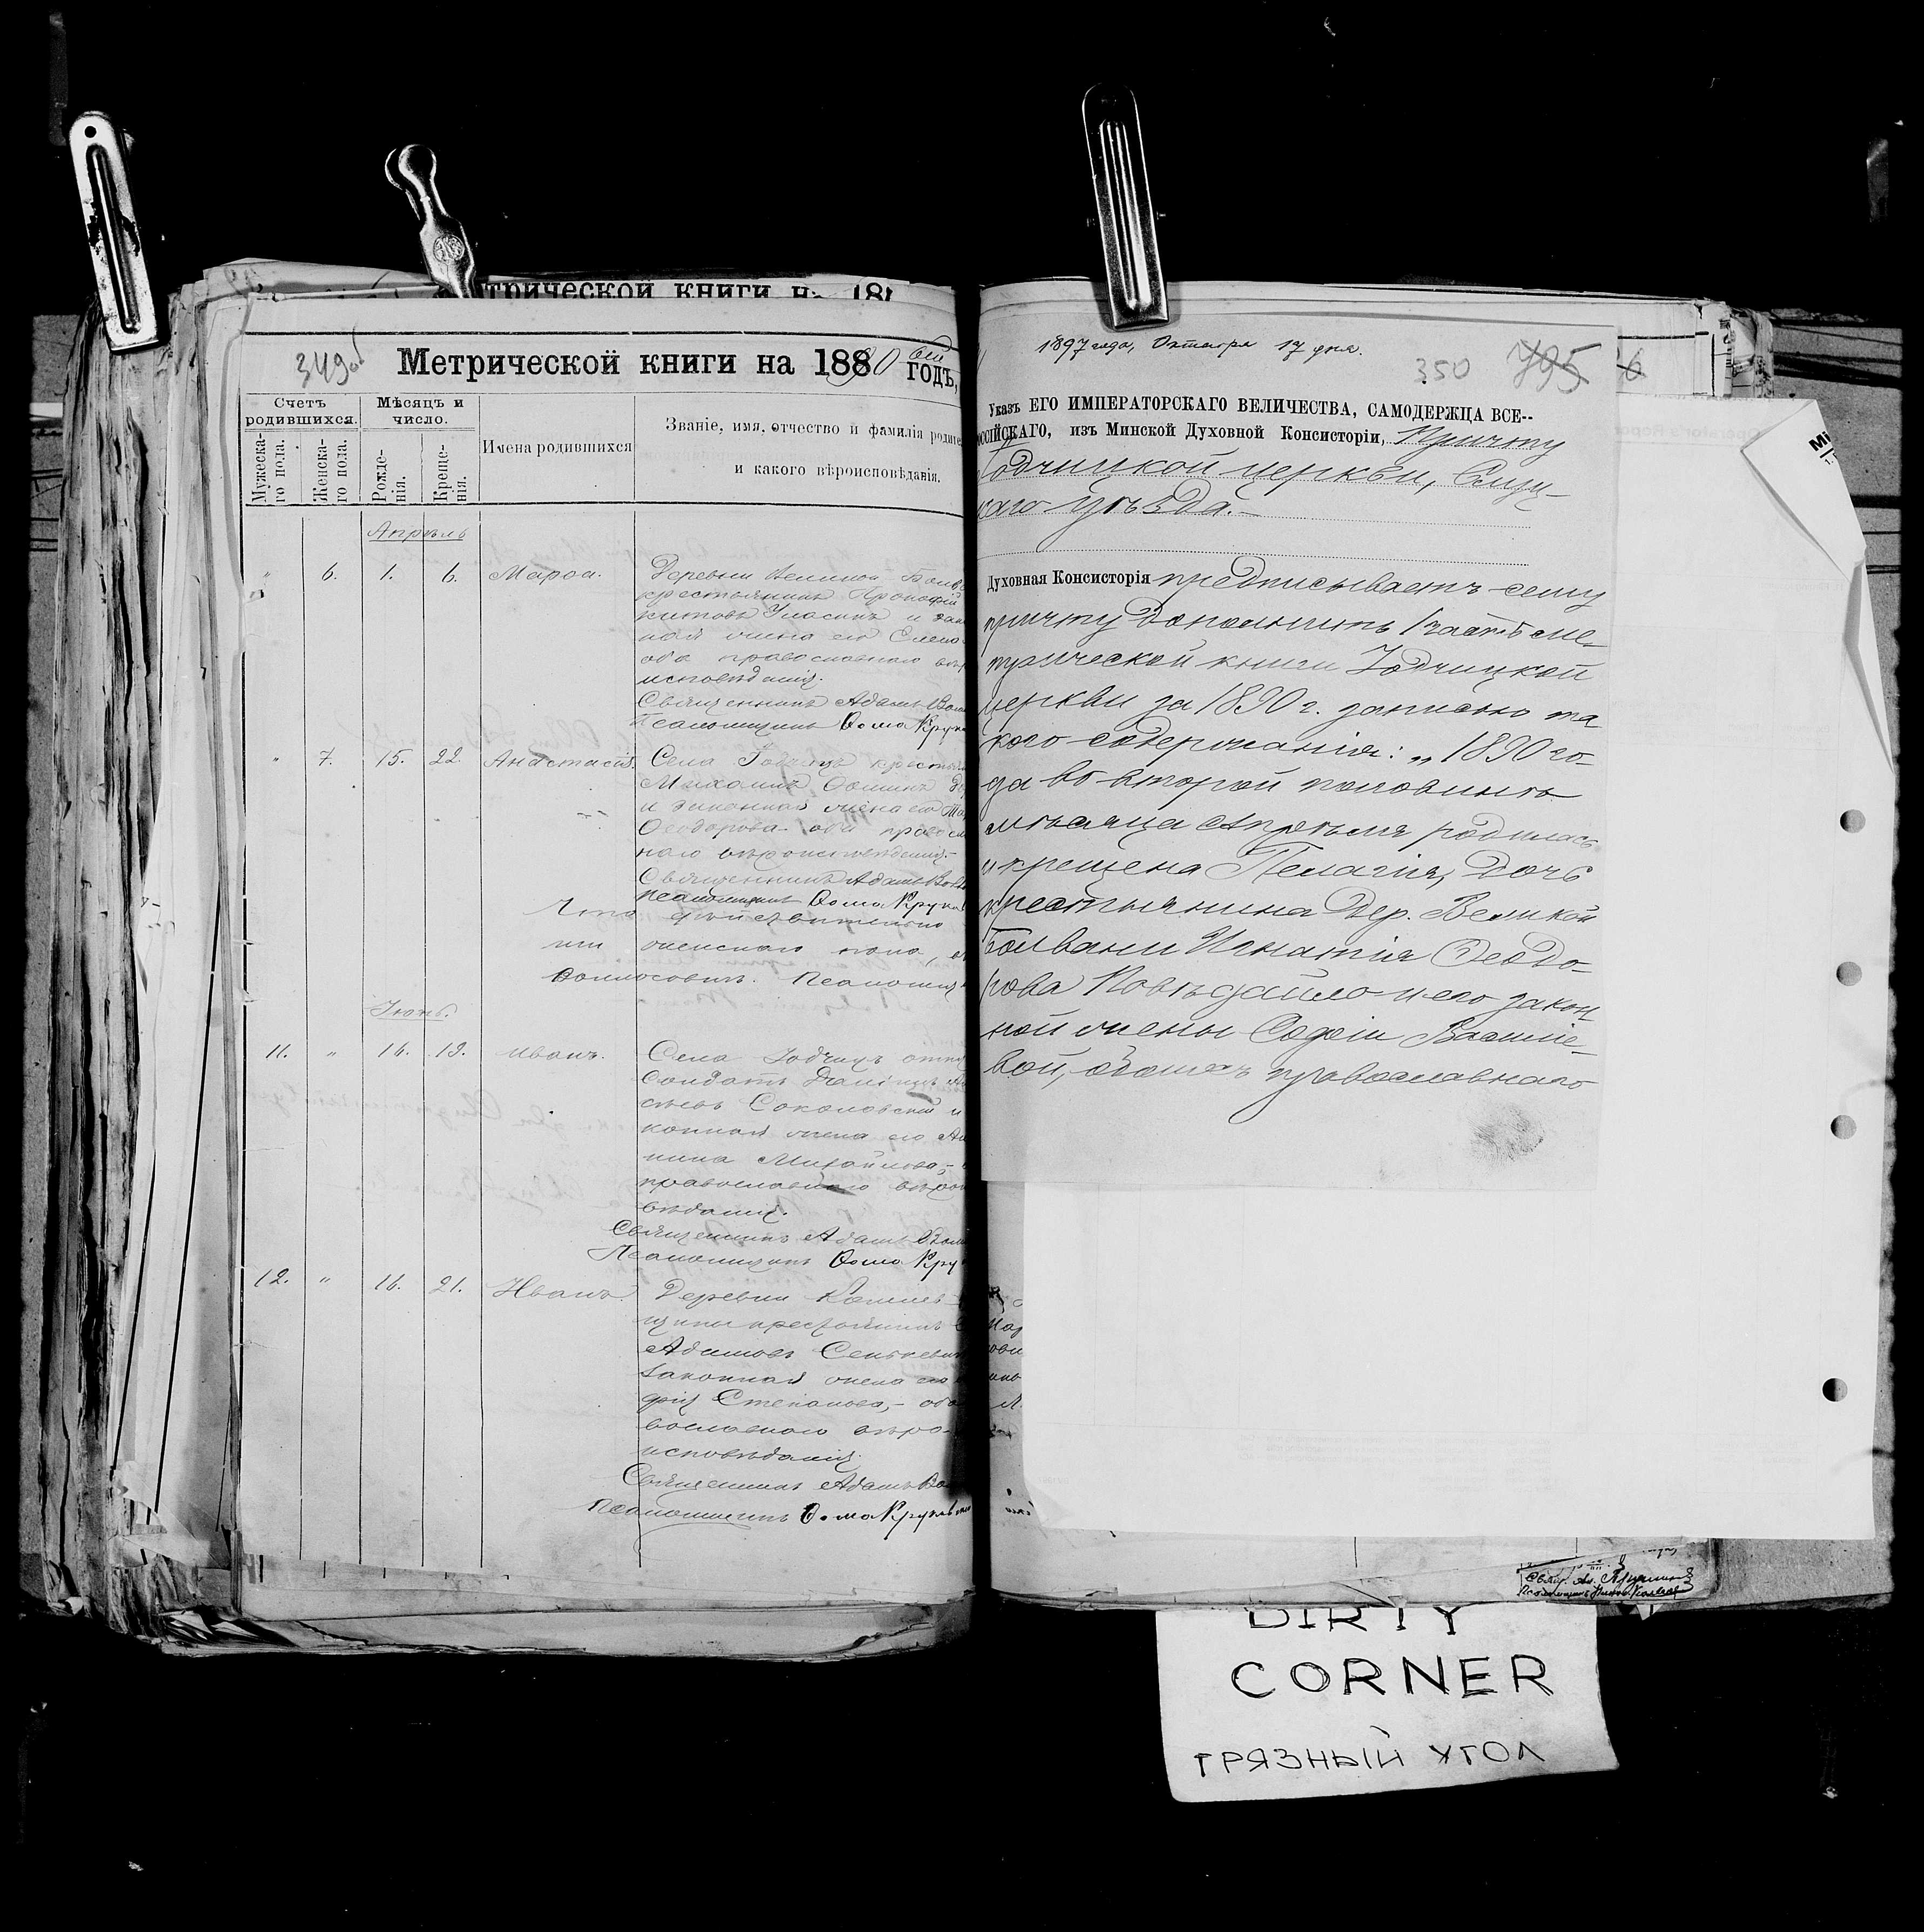 трической книги н 188
349об
Метрической книги на 1890ый годъ,
Счетъ родившихся.
Мѣсяцъ и число.
Мужеска-го пола.
Женска-го пола.
Рожде-нія.
Креще-нія.
Имена родившихся
Званіе, имя, отчество и фамилія родите
и какого вѣроисповѣданія.
Апрѣль
" 6. 1. 6. Марѳа.
Деревни Великой Болв
крестьянинъ Прокофій
китовъ и зак
ная жена его Елена
оба православнаго вѣр
исповѣданія.
Священникъ Адамъ Вол
Псаломщикъ Ѳома Крук
" 7. 15. 22. Анастасія.
Села Годчицъ крестья
Михаилъ
и законная жена его
Ѳеодорова оба правосл
наго вѣроисповѣданія.
Священникъ Адамъ Вол
Псаломщикъ Ѳома Круко
Что дѣйствительно
женскаго пола,
Волосовичъ. Псаломщ
Іюнь.
11. " 16. 19. Иванъ.
Села Годчицъ
солдатъ Даніилъ
Соколовскій и
конная жена его
Михайлова,
православнаго вѣрои
вѣданія.
Священникъ Адамъ Вол
Псаломщикъ Ѳома Кру
12. " 16. 21. Иванъ.
Деревни
щины крестьянинъ
Адамовъ Сенкевич
законная жена его
фія Степанова, оба
вославнаго вѣро-
исповѣданія.
Священникъ Адамъ Во
Псаломщикъ Ѳома Круковск
1897 года, Октября 17 дня.
350 795
Указъ ЕГО ИМПЕРАТОРСКАГО ВЕЛИЧЕСТВА, САМОДЕРЖЦА ВСЕ--
ОССІЙСКАГО, изъ Минской Духовной Консисторіи, Причту
одчицкой церкви, Слуц-
каго уѣзда.-
Духовная Консисторія предписываетъ сему
причту дополнить 1 часть ме-
трической книги Годчицкой
церкви за 1890 г. записью та
кого содержанія: „1890 го-
да во второй половинѣ
мѣсяца Апрѣля родилась
и крещена Пелагія, дочь
крестьянина дер. Великой
Болвани Игнатія Ѳеодо-
рова Повѣдайло и его закон-
ной жены Софіи Василіе-
вой, обоихъ православнаго
Свящ. Ал.
Псаломщикъ
DIRTY
CORNER
ГРЯЗНЫЙ УГОЛ